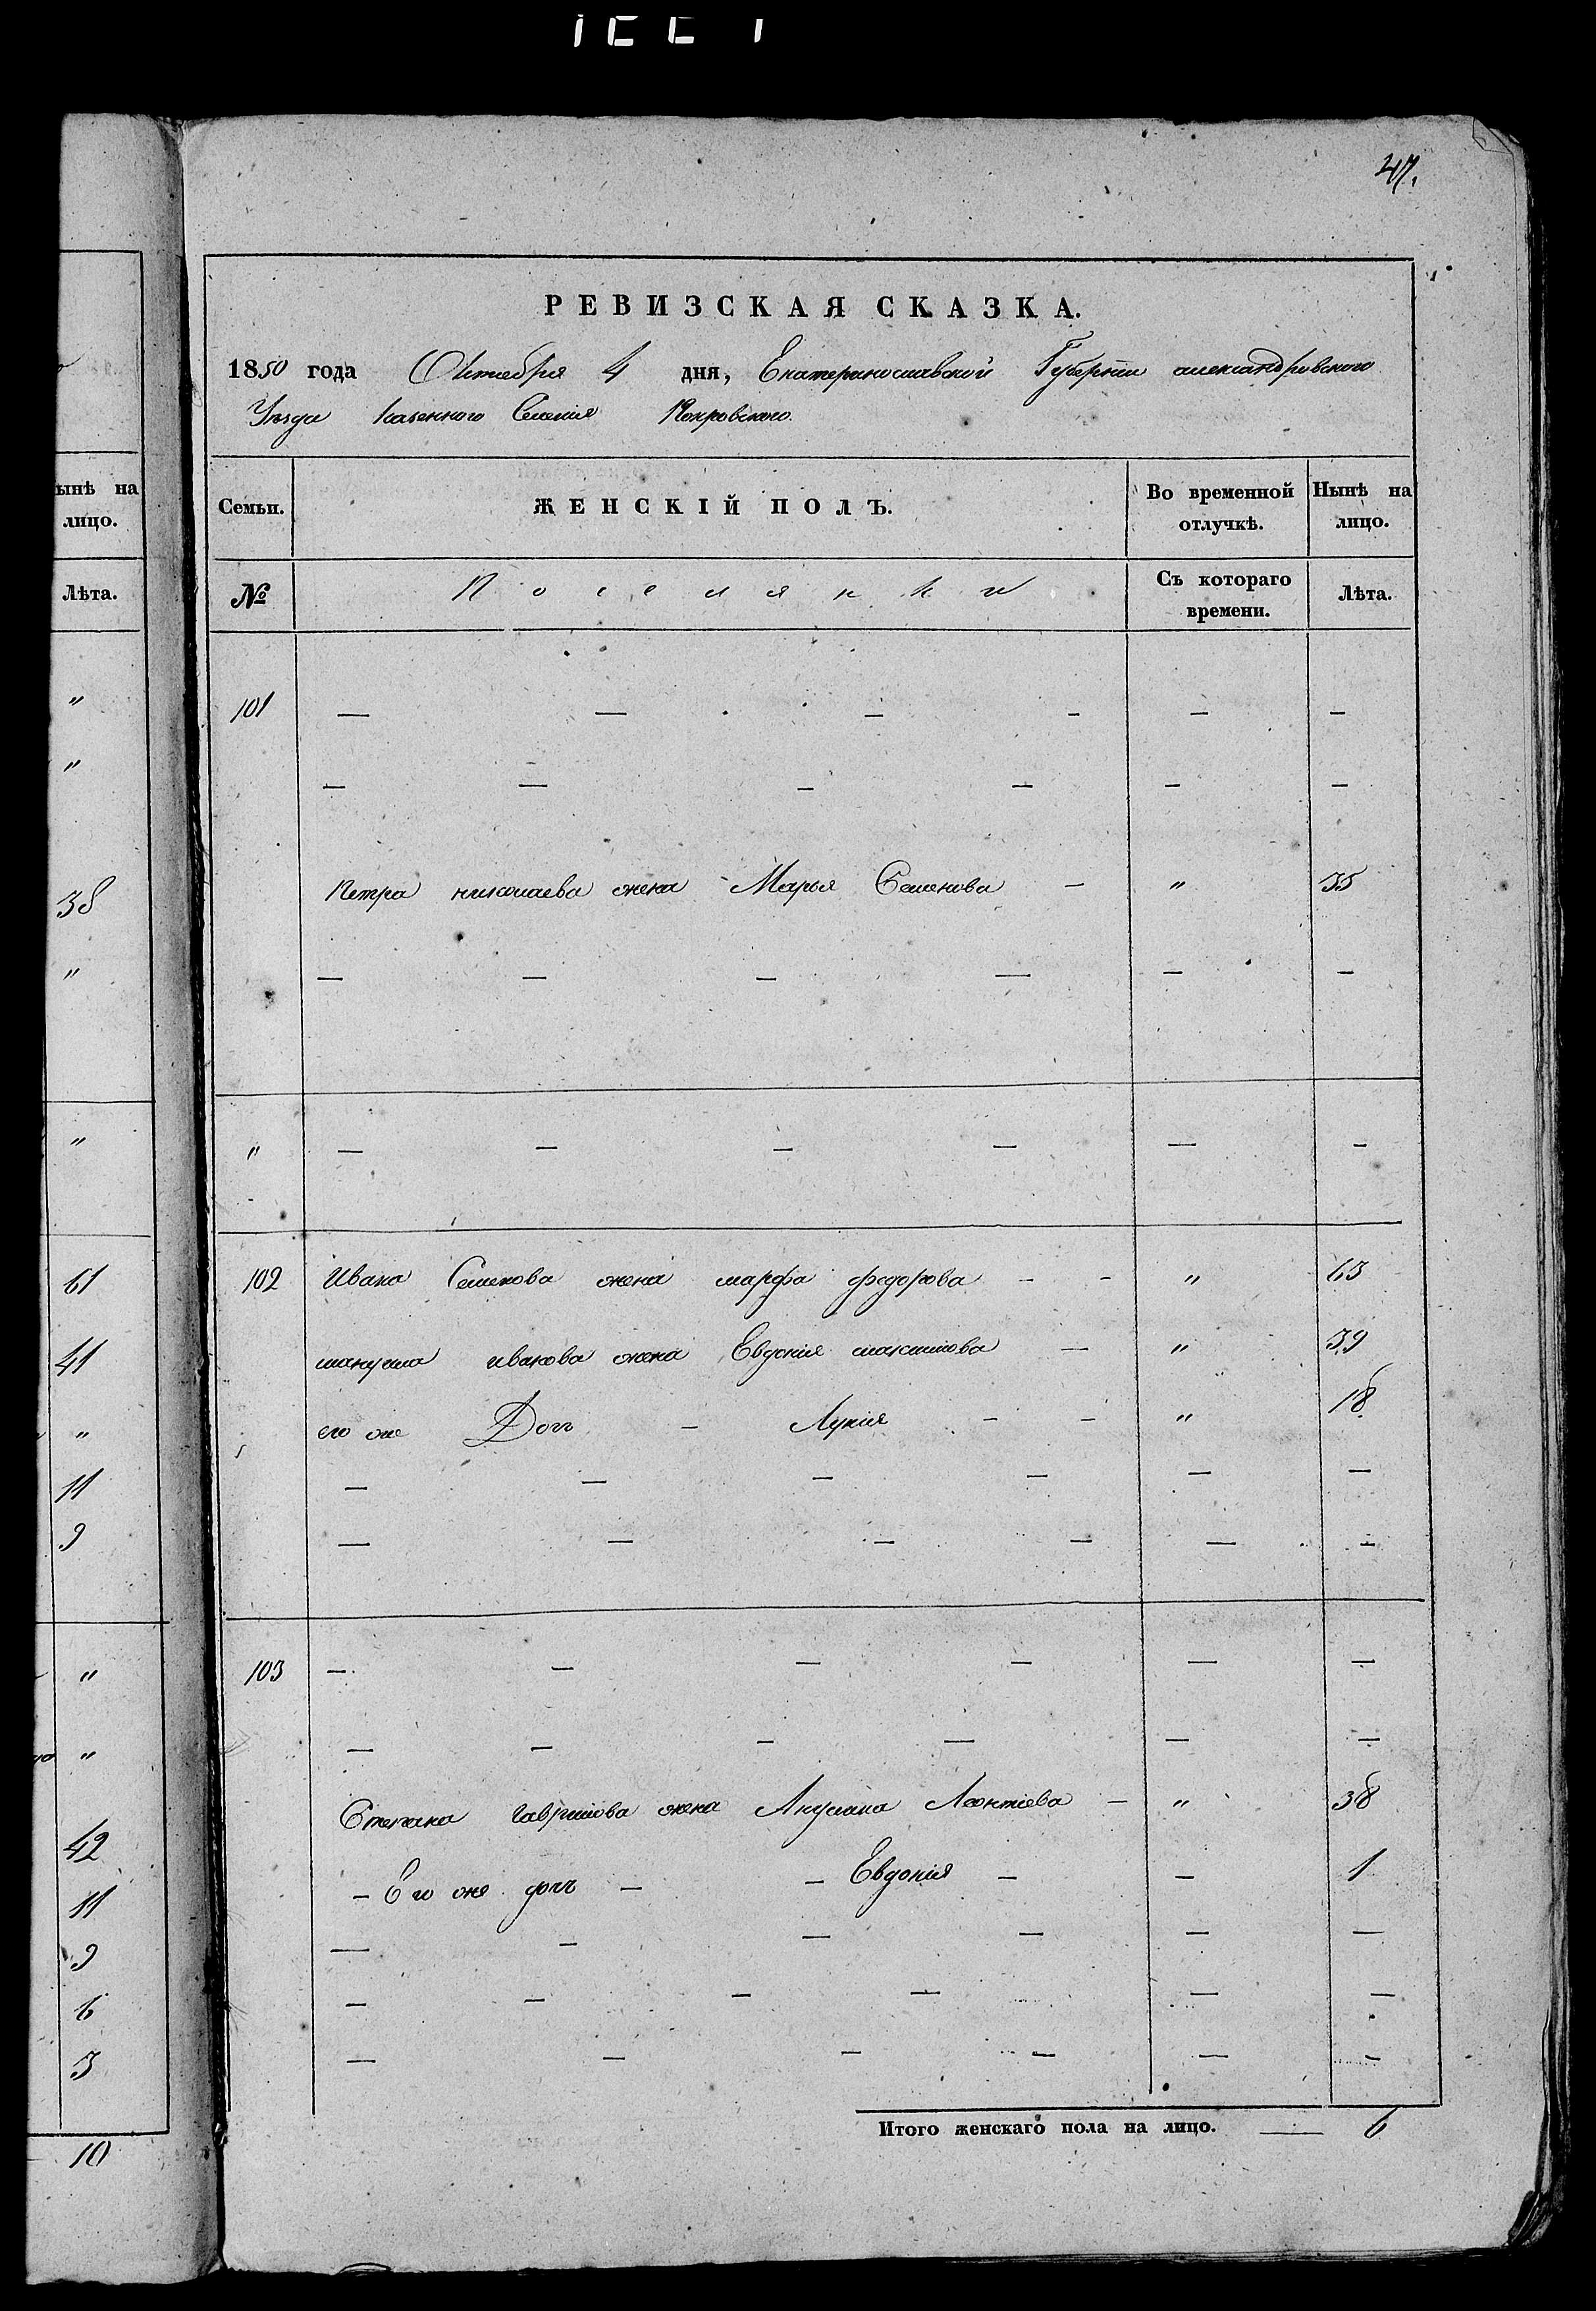 47.
РЕВИЗСКАЯ СКАЗКА.
1850 года Октября 4 дня, Екатеринославской Губернии александровского
Уѣзда казенного Селения Покровского.
ынѣ на
лицо.
Лѣта.
"
"
38
"
"
61
41
"
11
9
"
"
42
11
9
6
3
10
Семьи. ЖЕНСКІЙ ПОЛЪ. Во временной отлучкѣ. Нынѣ на лицо.
№ Поселянки Съ котораго времени. Лѣта.
101 — — — - — —
— — - — — —
Петра николаева жена Марья Семенова — " 35
— — — — — —
" — — — — — -
102 Ивана Семенова жена марфа федорова - - " 63
мануила иванова жена Евдокия максимова — " 39
его же Дочь - Лукия - - " 18
— — — — — —
— — — — — —
103 — — — — — —
— — — — — —
Степана гаврилова жена Акулина Леонтіева — " 38
- Его же дочь — — Евдокія — — 1
— — — — — —
— — — — — —
— — — — — —
Итого женскаго пола на лицо. — 6